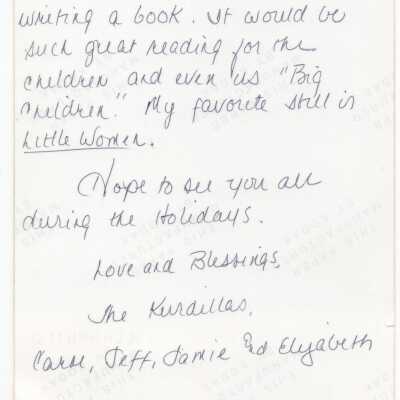 writing a book. It would be
such great reading for the
children and even us "Big
Children." My favorite still is
Little Women.
Hope to see you all
during the Holidays.
Love and Blessings,
The Kurdillas,
Jeff, Jamie and Elizabeth